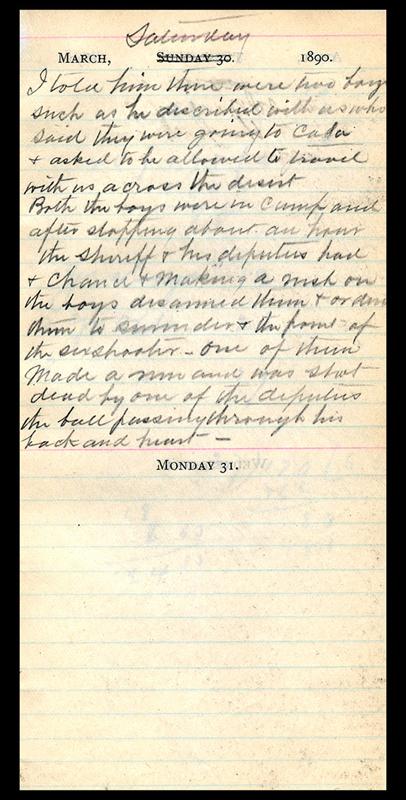 Saturday
MARCH, SUNDAY 30. 1890.
I told him there were two boys
such as he described with us who
said they were going to Cala
& asked to be allowed to travel
with us across the desert
Both the boys were in Camp and
after stopping about an hour
the Sheriff & his deputies had
& Chance & Making a rush on
the boys disarmed them & orden
them to surrender & the point of
the sixshooter - One of them
Made a run and was shot
dead by one of the deputies
the ball passing through his
back and heart -
MONDAY 31.